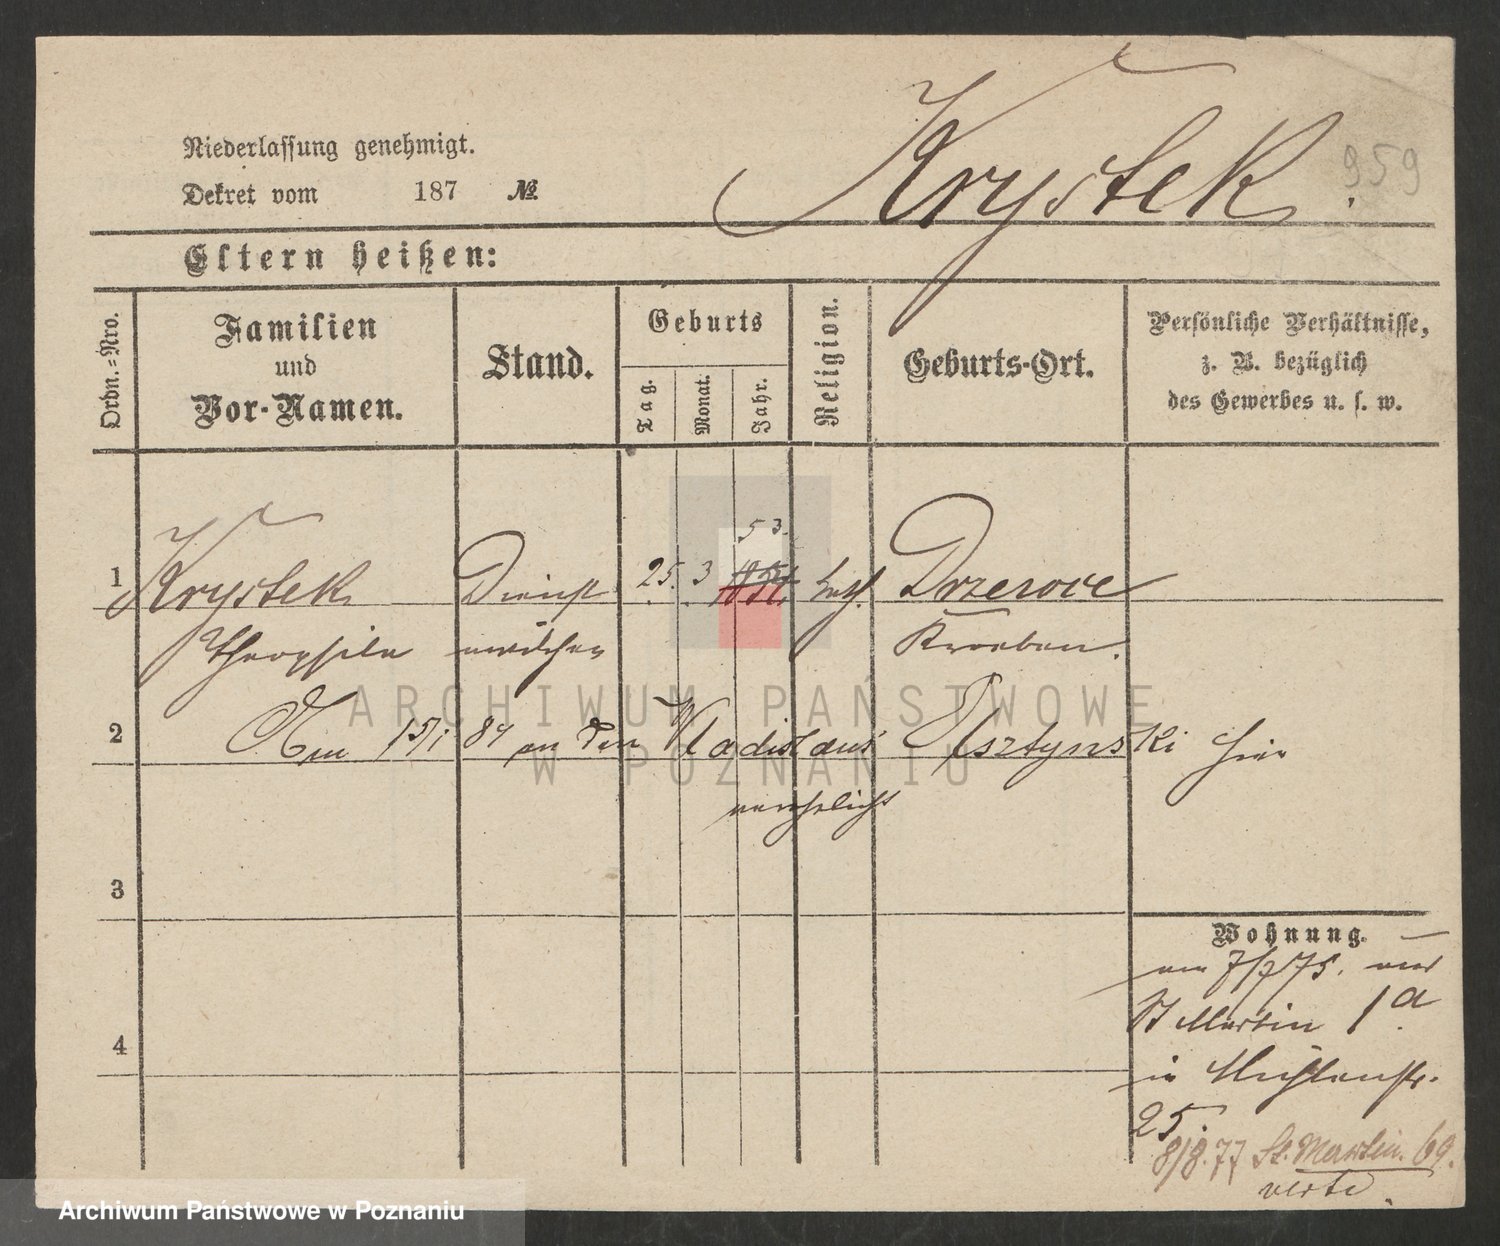 Krystek.
959
Niederlassung genehmigt.
Dekret vom 187 №
Eltern heißen:
Ordn.=Nro.
Familien und Vor-Namen.
Stand.
Geburts
Tag.
Monat.
Jahr.
Religion.
Geburts-Ort.
Persönliche Verhältnisse,
z. B. bezüglich
des Gewerbes u. s. w.
53.
1 Krystek Dienst 25. 3 kath. Drzewce
Theophila mädchen Kroeben.
2 Am 15/1 84 an den Wladislaus Olsztynski hier
verehelicht
3
4
Wohnung.
am 7/7 75. aus
St Martin 1a
in Mühlenstr.
25.
8/8.77 St. Martin. 69.
verte.
ARCHIWUM PAŃSTWOWE
W POZNANIU
Archiwum Państwowe w Poznaniu